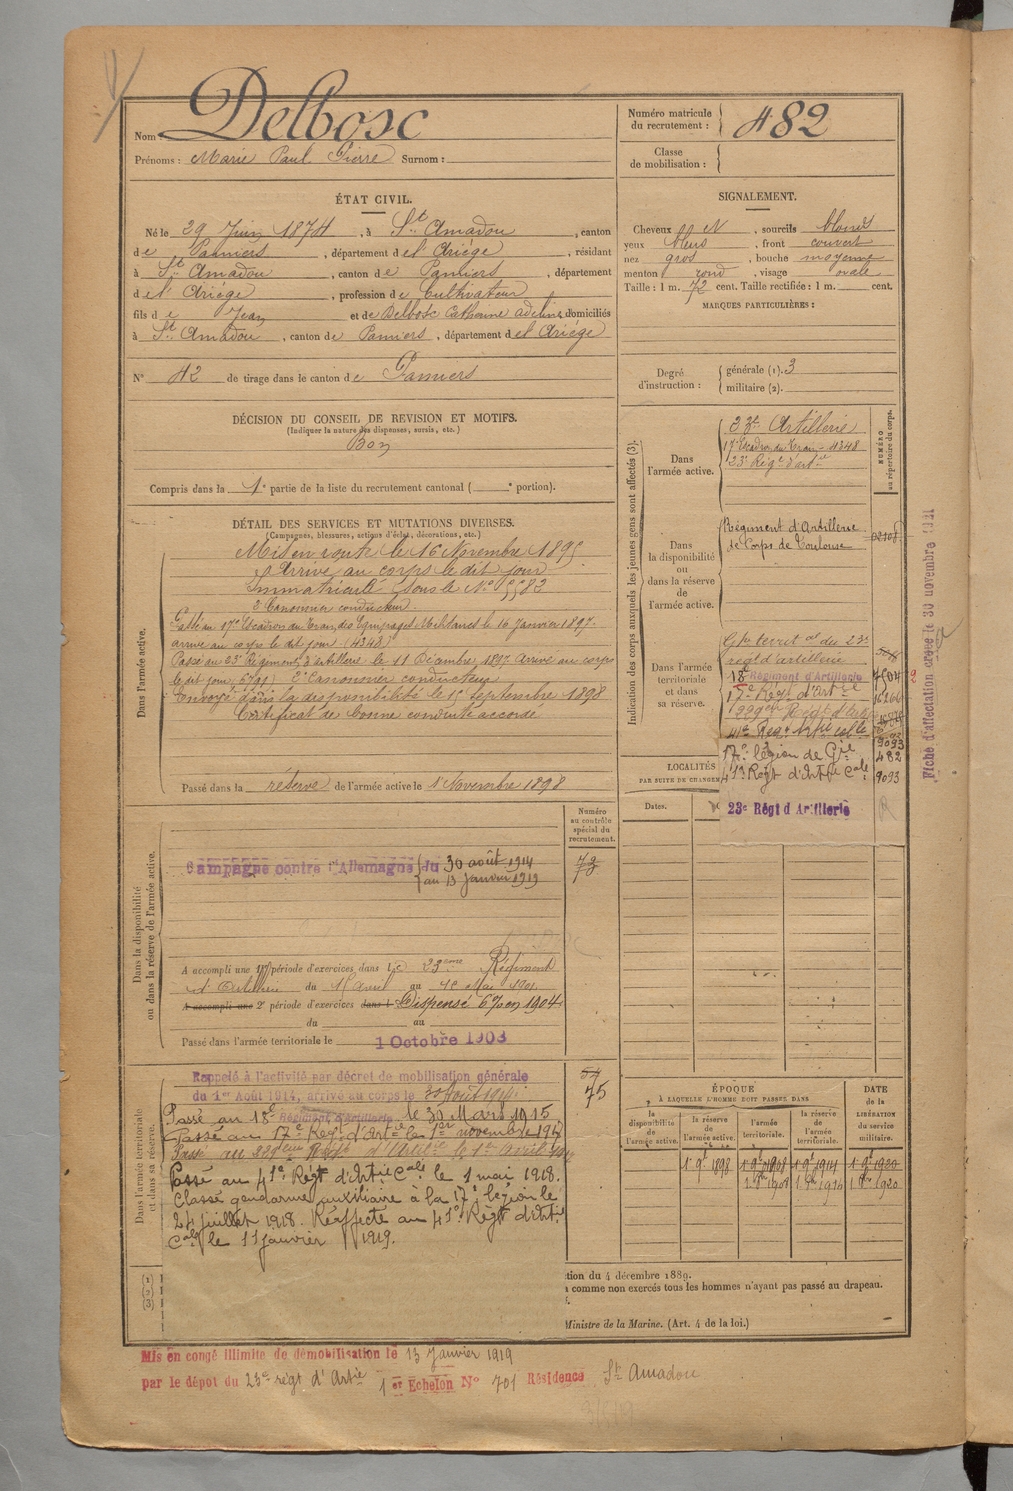 Nom : Delbosc
Prénoms : Marie Paul Pierre Surnom :
Numéro matricule du recrutement : 482
Classe de mobilisation :
ÉTAT CIVIL.
Né le 29 Juin 1874, à St Amadou, canton
de Pamiers, département de l'Ariège, résidant
à St Amadou, canton de Pamiers, département
de l'Ariège, profession de Cultivateur
fils de Jean et de Delbosc Catherine Adeline, domiciliés
à St Amadou, canton de Pamiers, département de l'Ariège
N° 42 de tirage dans le canton de Pamiers
SIGNALEMENT.
Cheveux N, sourcils blonds
yeux bleus, front couvert
nez gros, bouche moyenne
menton rond, visage ovale
Taille : 1 m. 72 cent. Taille rectifiée : 1 m. cent.
MARQUES PARTICULIÈRES :
Degré d'instruction : générale (1). 3
militaire (2).
DÉCISION DU CONSEIL DE REVISION ET MOTIFS.
(Indiquer la nature des dispenses, sursis, etc.)
Bon
Compris dans la 1e partie de la liste du recrutement cantonal ( e portion).
DÉTAIL DES SERVICES ET MUTATIONS DIVERSES.
(Campagnes, blessures, actions d'éclat, décorations, etc.)
Dans l'armée active.
Mis en route le 16 Novembre 1895
Arrivé au corps le dit jour
Immatriculé sous le N°
2e Canonnier conducteur.
17e Escadron du Train des Équipages Militaires le 16 Janvier 1897.
arrivé au corps le dit jour (4348)
Passé au 23e Régiment d'artillerie le 11 Décembre 1897 Arrivé au corps
le dit jour, 2e Canonnier conducteur
Envoyé dans la disponibilité le 15 Septembre 1898
Certificat de bonne conduite accordé
Passé dans la réserve de l'armée active le 1 Novembre 1898
Indication des corps auxquels les jeunes gens sont affectés (3).
NUMÉRO au répertoire du corps.
Dans l'armée active.
23e Artillerie
17e Escadron du Train - 4348
23e Régt d'artie
Dans la disponibilité ou dans la réserve de l'armée active.
Régiment d'Artillerie
de Corps de Toulouse
Dans l'armée territoriale et dans sa réserve.
Gpe territal du 23e
régt d'artillerie
18e Régiment d'Artillerie
17e Régt d'Artie
41e Regt Artie colle 9093
17e légion de Gie 482
41e Régt d'Artie Cale 9093
23e Régt d'Artillerie
Fiche d'affectation créée le 30 novembre 1921
LOCALITÉS
PAR SUITE DE CHANGEM
Dates.
Dans la disponibilité ou dans la réserve de l'armée active.
Numéro au contrôle spécial du recrutement.
73
Campagne contre l'Allemagne du 30 août 1914
au 13 Janvier 1919
A accompli une 1re période d'exercices dans le 23ème Régiment
d'Artillerie du 15 avril au 12 Mai 1901
A accompli une 2e période d'exercices dans l Dispensé en 1904
du au
Passé dans l'armée territoriale le 1 Octobre 1908
Dans l'armée territoriale et dans sa réserve.
54
75
Rappelé à l'activité par décret de mobilisation générale
du 1er Août 1914, arrivé au corps le 30 Août 1914
Passé au 18e Régiment d'Artillerie le 30 Mars 1915
Passé au 17e Régt d'Artie le 1er novembre 1917
Passé au 229ème Régt d'Artie le 1er avril
Passé au 41e Régt d'Artie Cale le 1 mai 1918.
Classé gendarme auxiliaire à la 17e légion le
24 juillet 1918. Réaffecté au 41e Régt d'Artie
Cale le 11 janvier 1919.
ÉPOQUE
À LAQUELLE L'HOMME DOIT PASSER DANS
la disponibilité de l'armée active.
la réserve de l'armée active.
l'armée territoriale.
la réserve de l'armée territoriale.
DATE de la LIBÉRATION du service militaire.
(1)
(2)
(3)
tion du 4 décembre 1889.
comme non exercés tous les hommes n'ayant pas passé au drapeau.
Ministre de la Marine. (Art. 4 de la loi.)
Mis en congé illimité de démobilisation le 13 Janvier 1919
par le dépôt du 23e régt d'Artie 1er Echelon N° 701 Résidence St Amadou